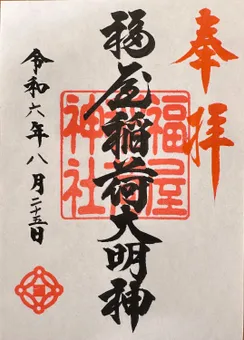 奉拝
福屋稲荷大明神
福屋
神社
令和六年八月二十五日